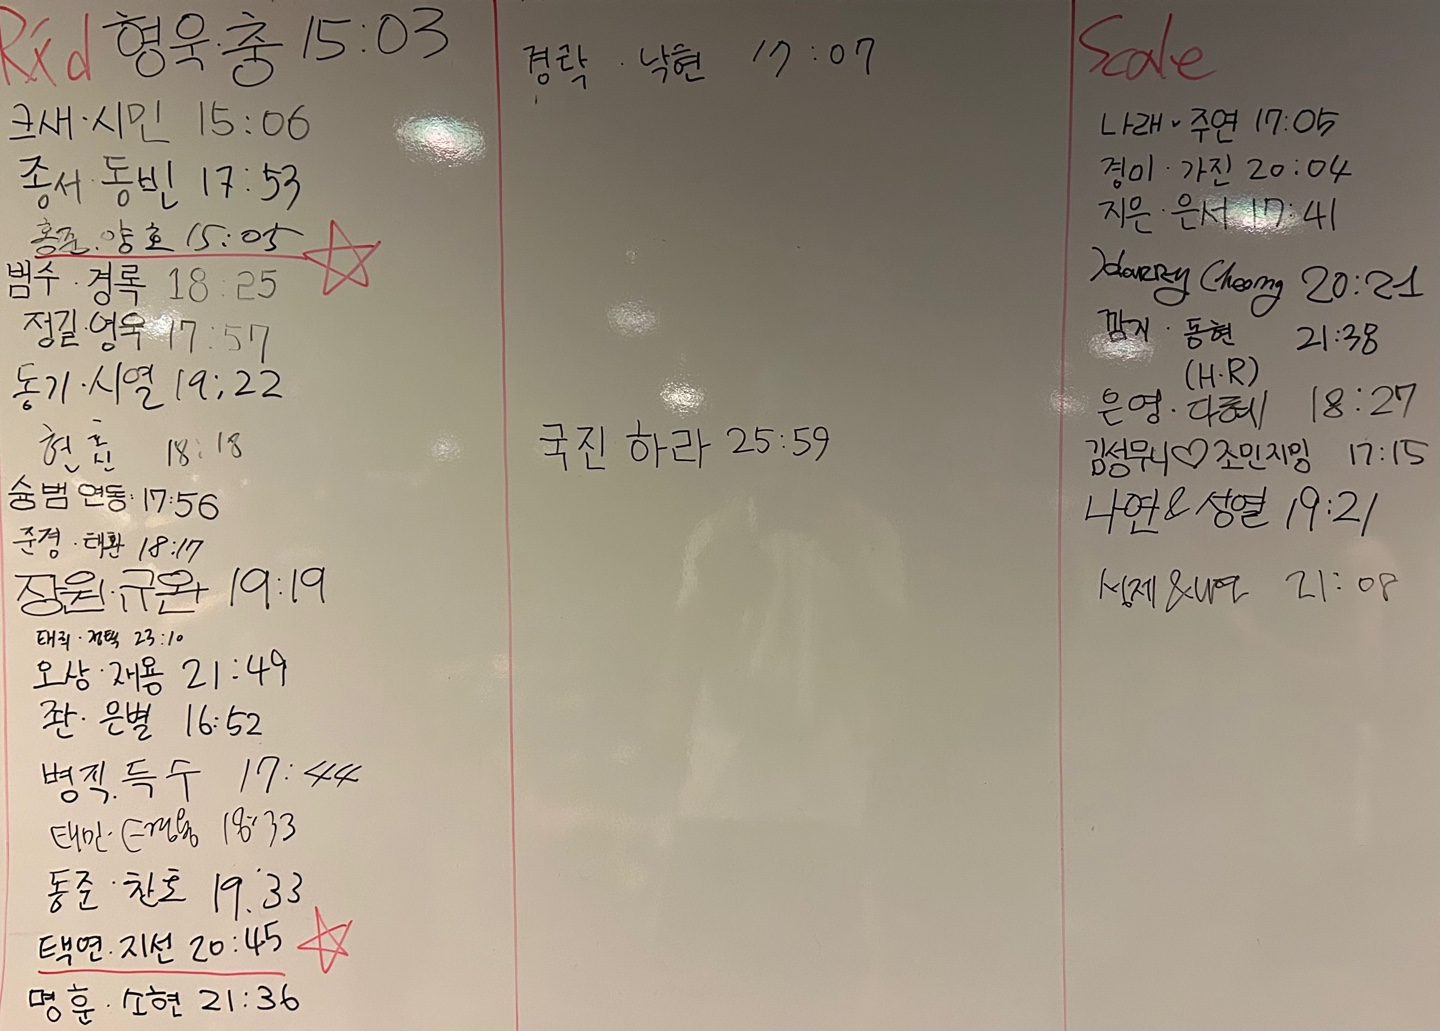 Rxd 형욱·충 15:03
크새·시민 15:06
종서·동빈 17:53
홍준·양호 15:05
범수·경록 18:25
정길·영욱 17:57
동기·시열 19:22
현훈 18:18
숭범 연동 17:56
준경·태환 18:17
장원·규완 19:19
태희·정택 23:10
오상·재용 21:49
좐·은별 16:52
병직·득수 17:44
태민· 18:33
동준·찬호 19:33
택연·지선 20:45
명훈·소현 21:36
경락·낙현 17:07
국진 하라 25:59
Scale
나래·주연 17:05
경이·가진 20:04
지은·은서 17:41
Cheong 20:21
깜지·동현 21:38
(H·R)
은영·다혜 18:27
김성무니♡조민지밍 17:15
나연&성열 19:21
성제&나연 21:08